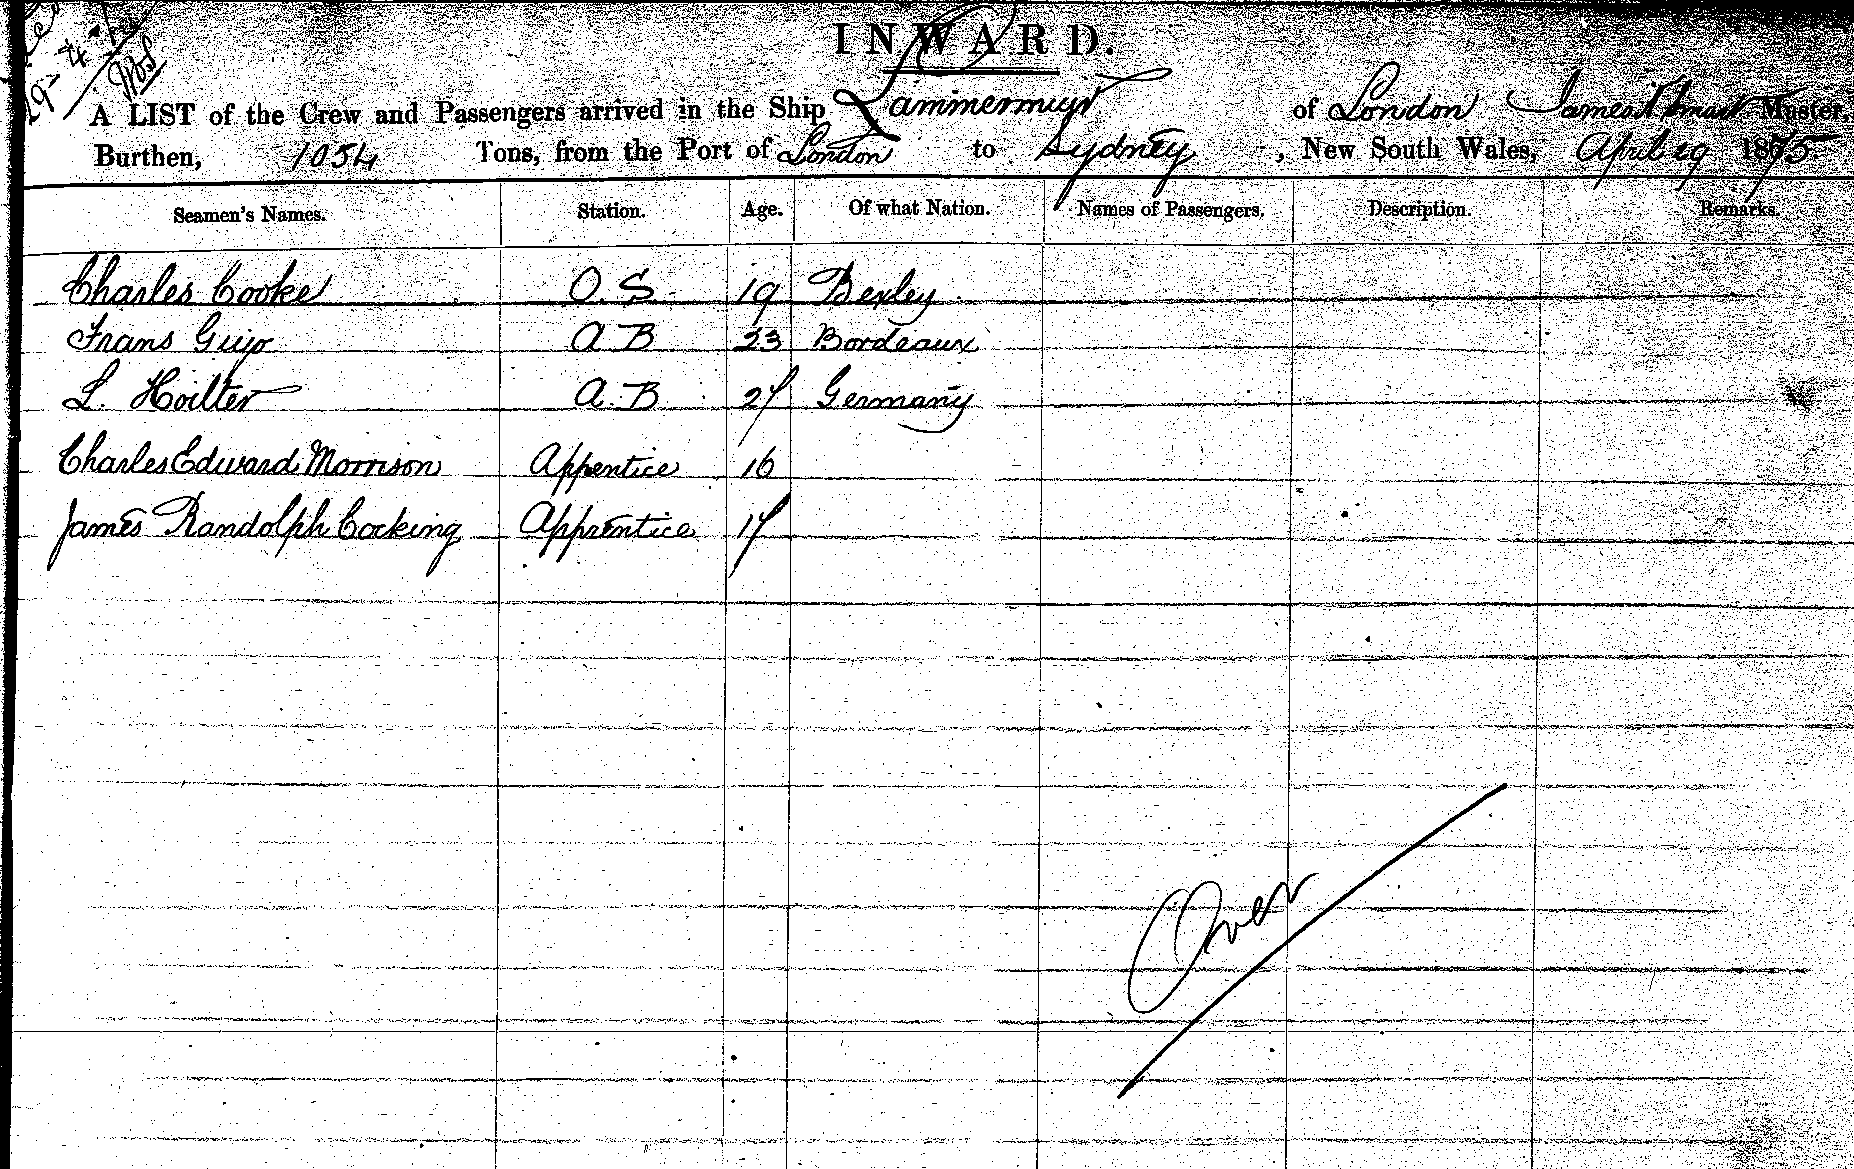 29-4-
INWARD.
A LIST of the Crew and Passengers arrived in the Ship Lammermuyr of London James Master,
Burthen, 1054 Tons, from the Port of London to Sydney, New South Wales, April 29 1875
Seamen's Names. Station. Age. Of what Nation. Names of Passengers. Description. Remarks.
Charles Cooke O. S. 19 Bexley
Frans Guyo A B 23 Bordeaux
L. Hoilter A. B 27 Germany
Charles Edward Morrison Appentice 16
James Randolph Cocking Apprentice 17
Over